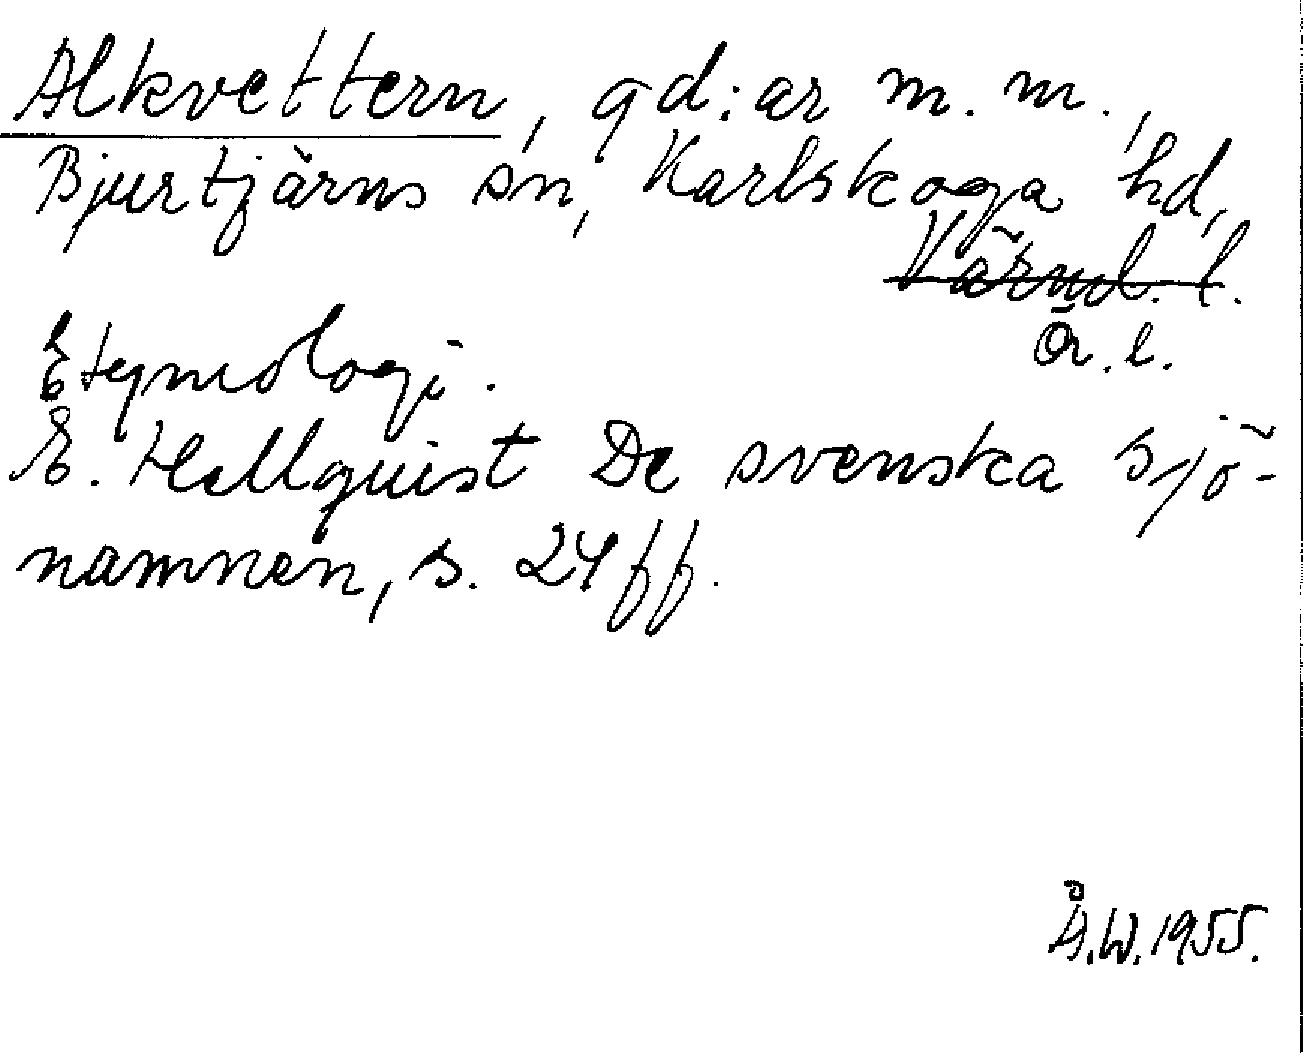 Alkvettern, gd:ar m. m.,
Bjurtjärns sn, Karlskoga hd,
Värml. l.
Ör. l.
Etymologi.
E. Hellquist De svenska sjö-
namnen, s. 24 ff.
Å.W. 1955.